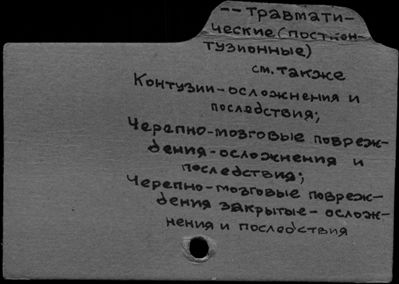 -- травмати-
ческие (посткон-
тузионные)
см. также
Контузии-осложнения и
последствия;
Черепно-мозговые повреж-
дения-осложнения и
последствия;
Черепно-мозговые повреж-
дения закрытые-ослож-
нения и последствия